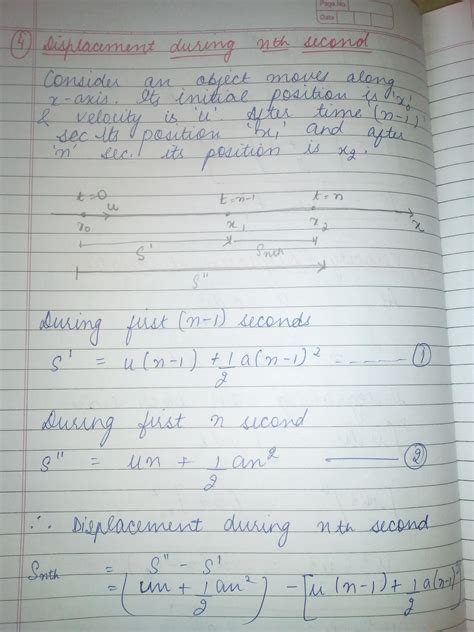 Page No.
Date
④ Displacement during nth second
Consider an object moves along
x-axis. Its initial position is 'x₀'
& velocity is 'u' After time (n-1)
sec Its position 'x₁' and after
'n' sec. its position is x₂.
t=0 u t=n-1 t=n
x₀ x₁ x₂ x
S' Snth
S"
During first (n-1) seconds
S' = u(n-1) + 1/2 a(n-1)² ------ ①
During first n second
S" = un + 1/2 an² —— ②
∴ Displacement during nth second
Snth = S" - S'
= (un + 1/2 an²) - [u(n-1) + 1/2 a(n-1)²